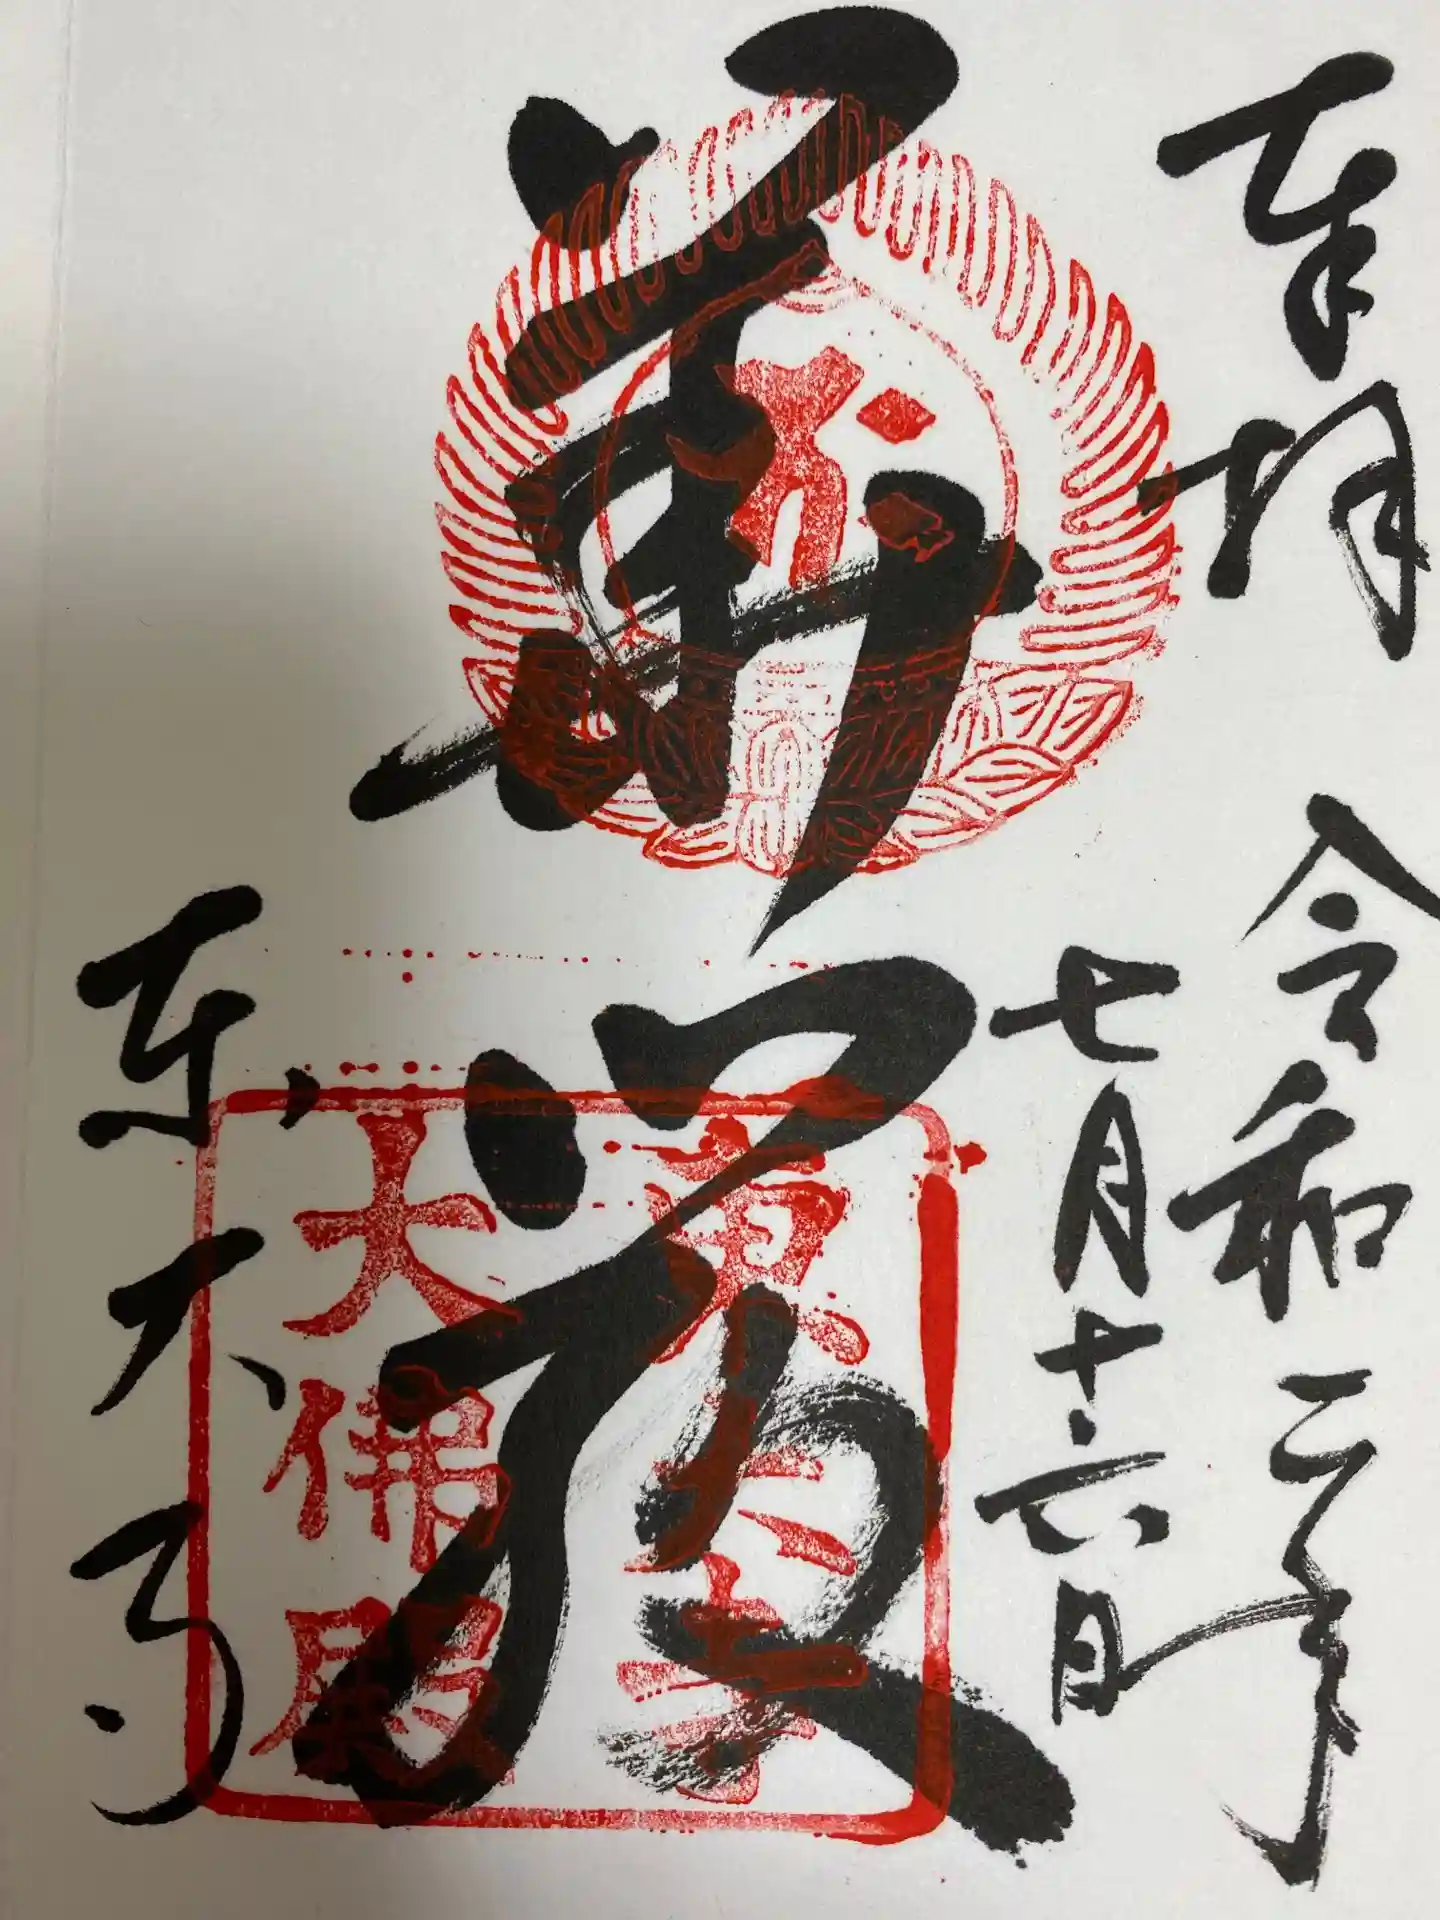 奉拝
令和二年
七月十六日
華厳
東大寺
東大寺
大佛殿